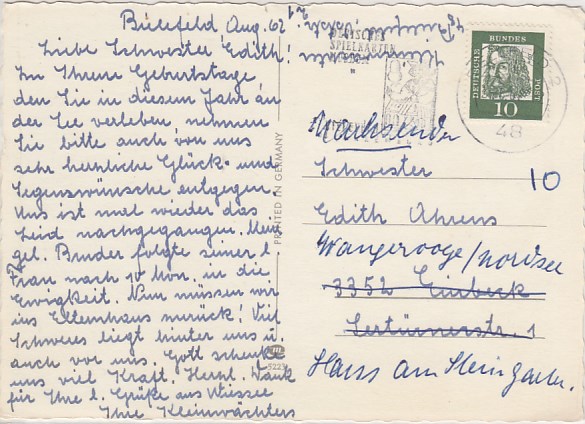 Bielefeld, Aug. 62
Liebe Schwester Edith!
Zu Ihrem Geburtstage
den Sie in diesem Jahr an
der See verleben nehmen
Sie bitte auch von uns
sehr herzliche Glück- und
Segenswünsche entgegen.
Uns ist mal wieder das
Leid nachgegangen. Mein
Bruder folgte seiner l.
Frau nach 10 Mon. in die
Ewigkeit. Nun müssen wir
ins Elternhaus zurück! Viel
Schweres liegt hinter uns u.
auch vor uns. Gott schenke
uns viel Kraft. Herzl. Dank
für Ihre l. Grüße aus Wiessee
Ihre Kleinwächters
PRINTED IN GERMANY
DEUTSCHES
SPIELKARTEN
48
DEUTSCHE BUNDESPOST
10
Nachsenden
Schwester
10
Edith Ahrens
Wangerooge/Nordsee
3352 Einbeck
Sertürnerstr. 1
Haus am Steingarten.